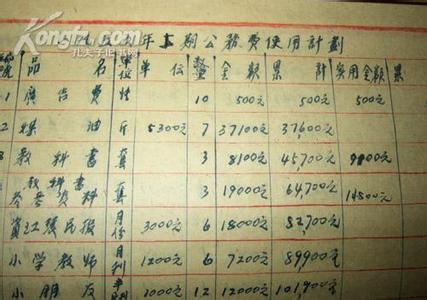 Kongfz.com
孔夫子旧书网
年上期公務費使用計劃
品名 單位 單价 數量 金額 累計 實用金額 累
1 廣告費 10 500元 500元 500元
2 煤油 斤 5300元 7 37100元 37,600元
3 教科書 套 3 8100元 45,700元
教科書
參考資料 套 3 19000元 64,700元 14800元
資江農民報 月份 3000元 6 18000元 82,700元
小學教師 月刊 1200元 6 7200元 89,900元
小朋友 1000元 12 12000元 101,900元